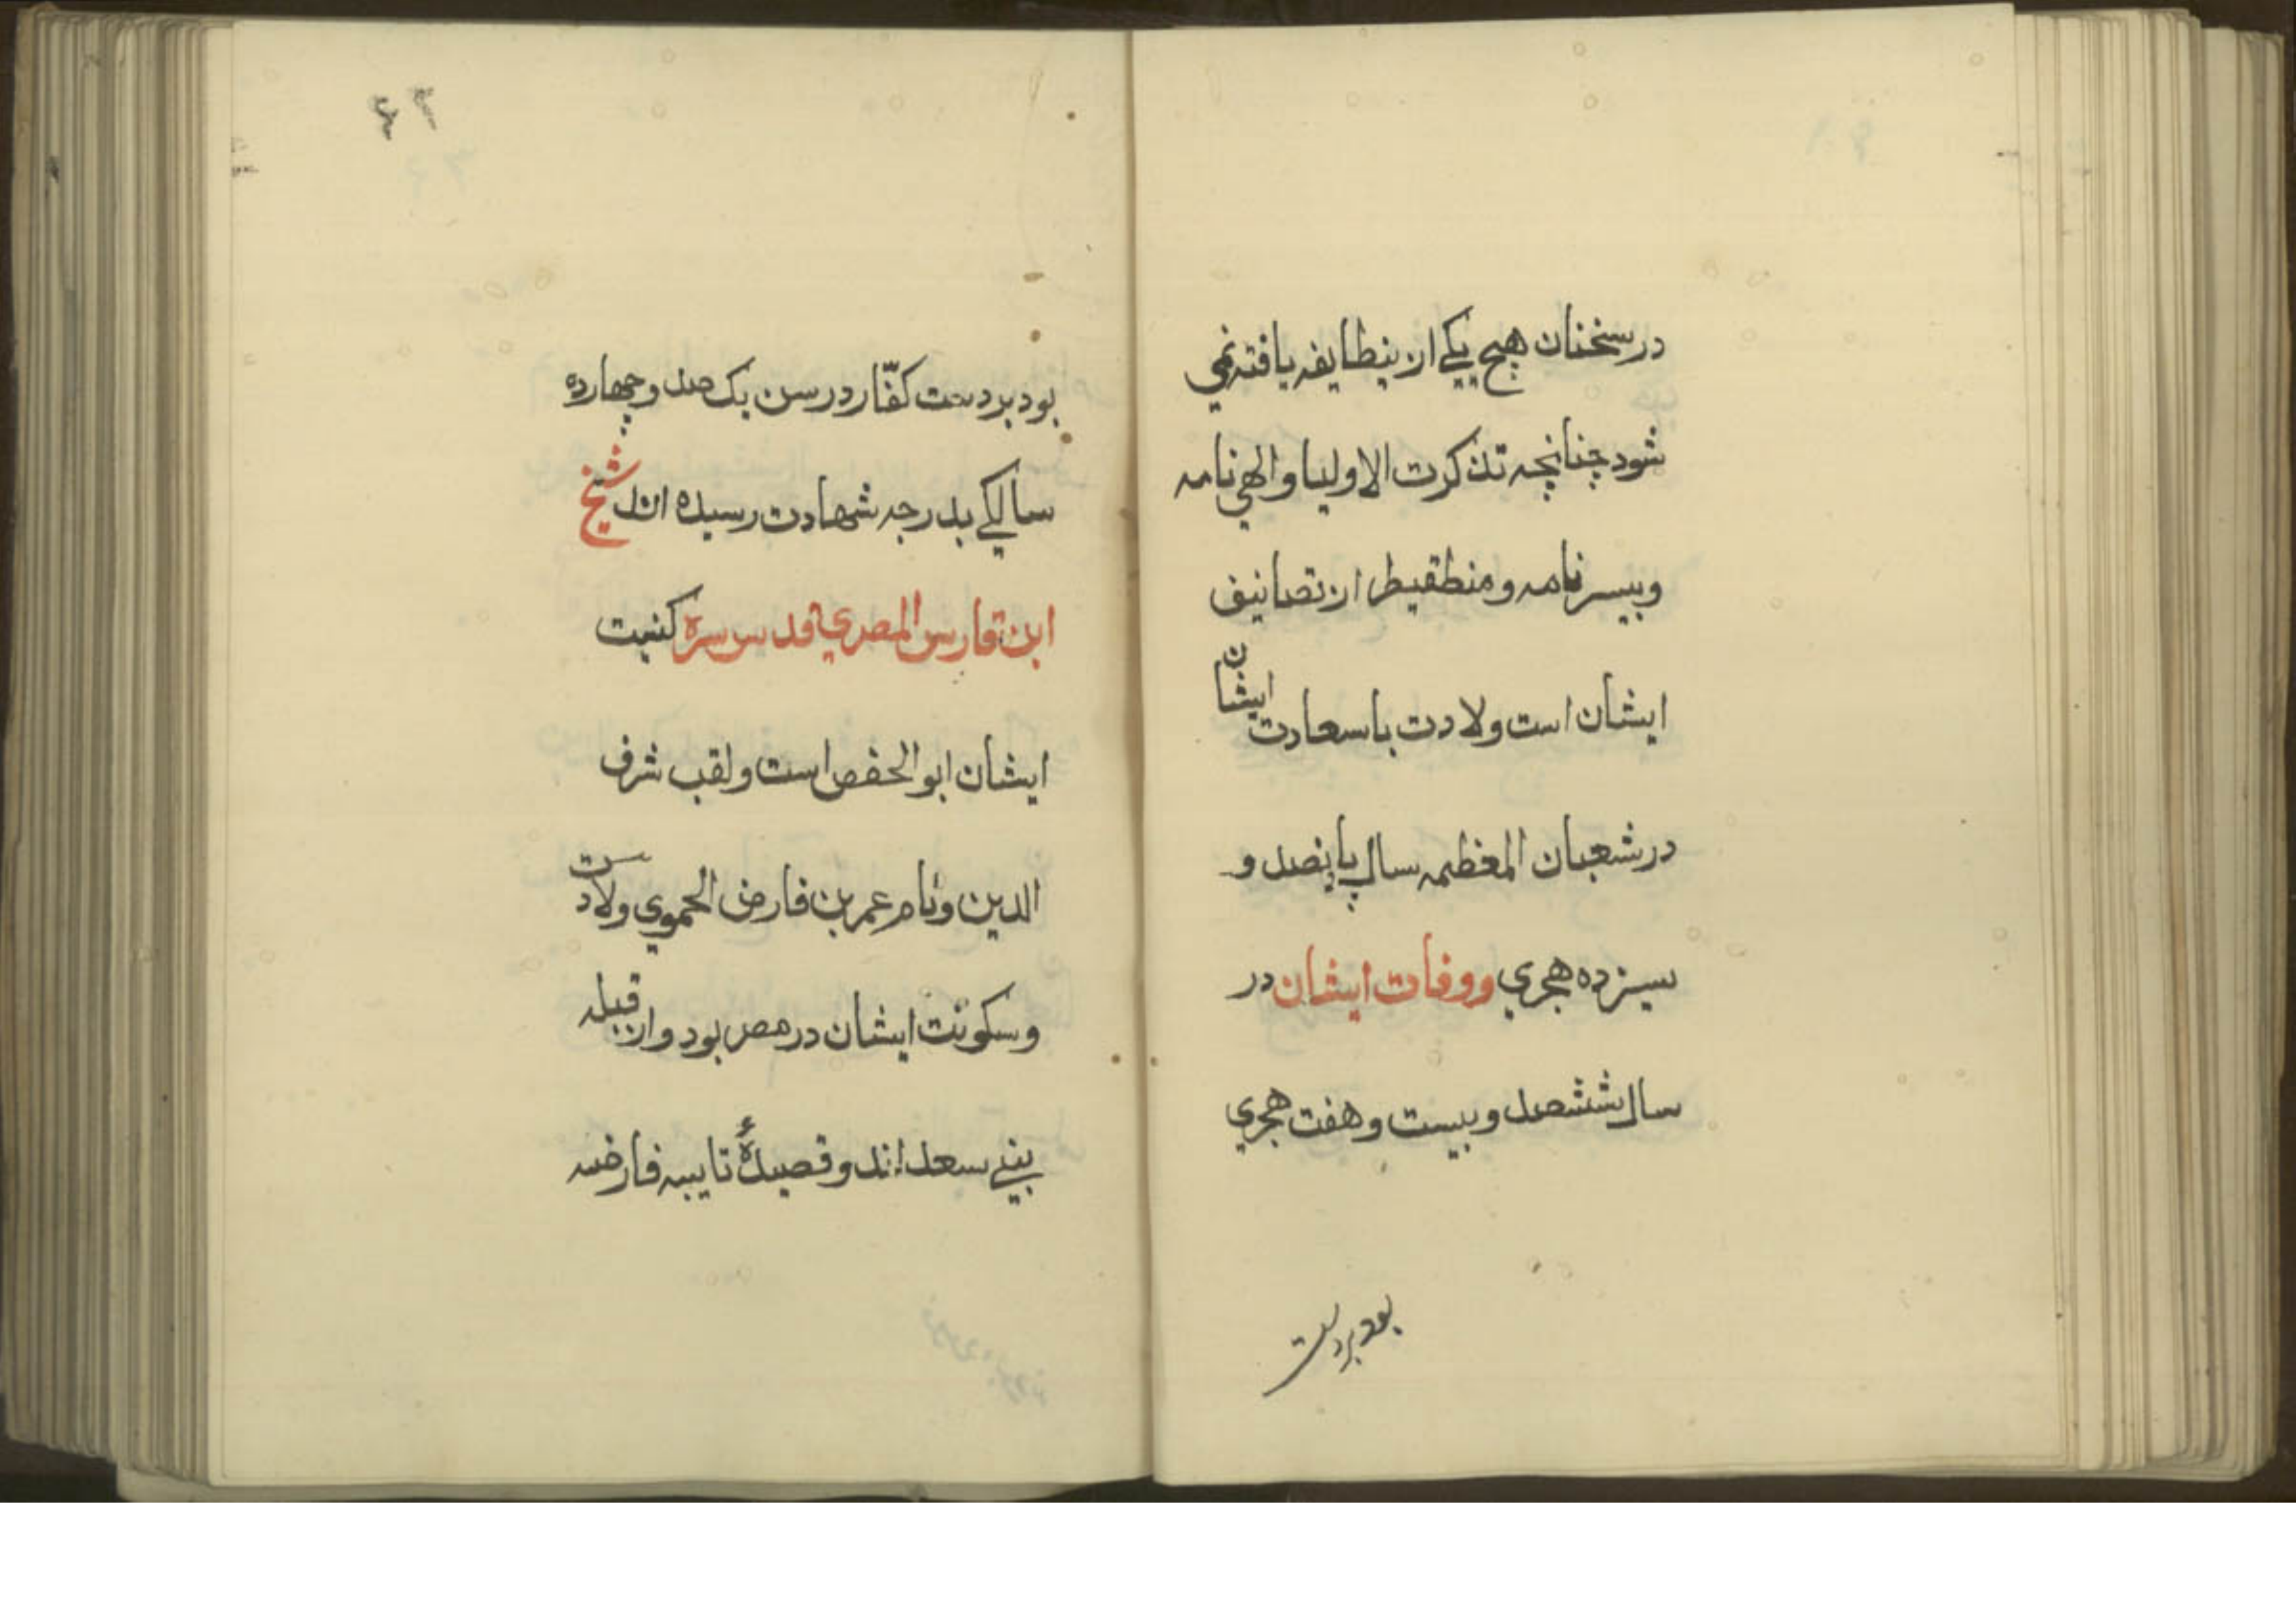 در سخنان هیچ یکے ازینطایفہ یافتہ نمی
شود چنانچہ تذکرت الاولیا و الهی نامہ
و بیسرنامہ و منطقیطر از تصانیف
ایشان است ولادت باسعادت ایشان
در شعبان المعظمہ سال پانصد و
سیزده هجری و وفات ایشان در
سال ششصد و بیست و هفت هجری
بود بردست
بود بردست کفّار در سن یک صد و چهارده
سالکے بدرجہ شهادت رسیده اند شیخ
ابن فارس المصری قدس سره کنیت
ایشان ابوالحفص است و لقب شرف
الدین و نام عمر بن فارض الحموی ولادت
و سکونت ایشان در مصر بود و از قبیلہ
بنے سعد اند و قصیدۀ تاییہ فارضیہ